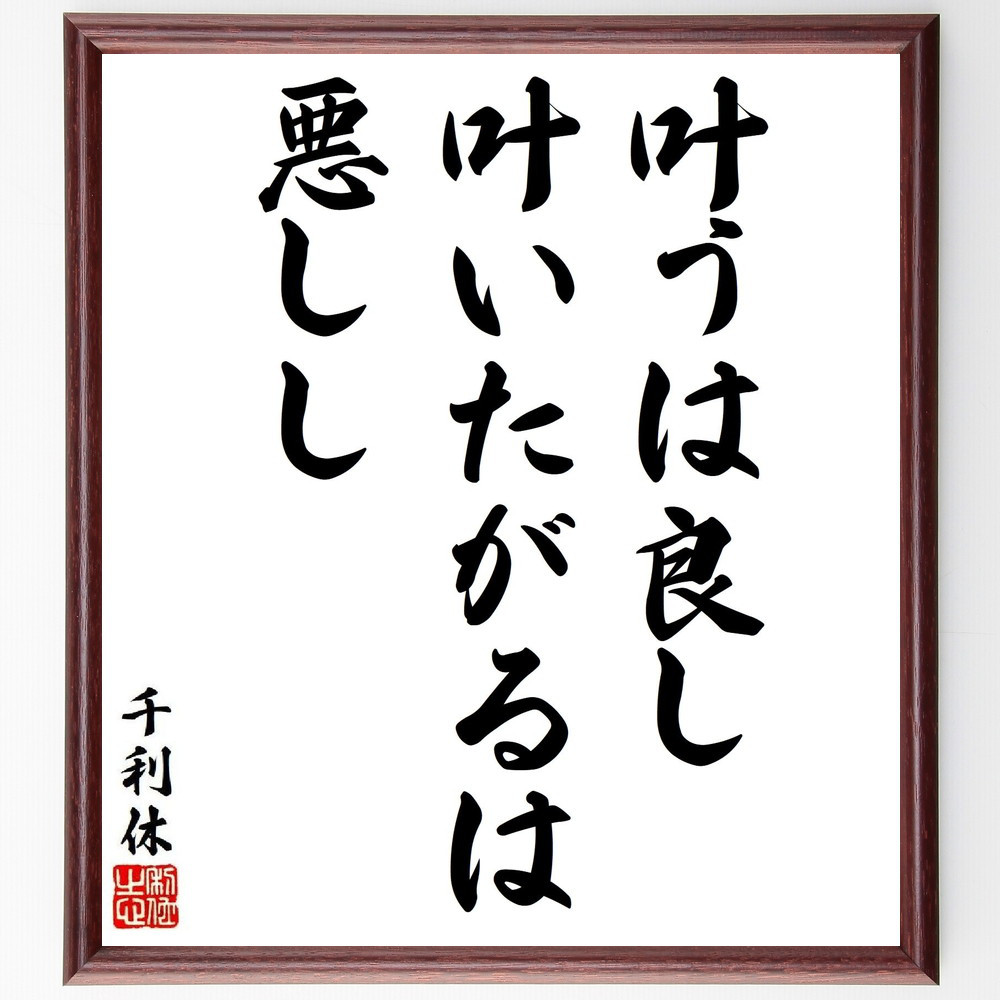 叶うは良し
叶いたがるは
悪しし
千利休